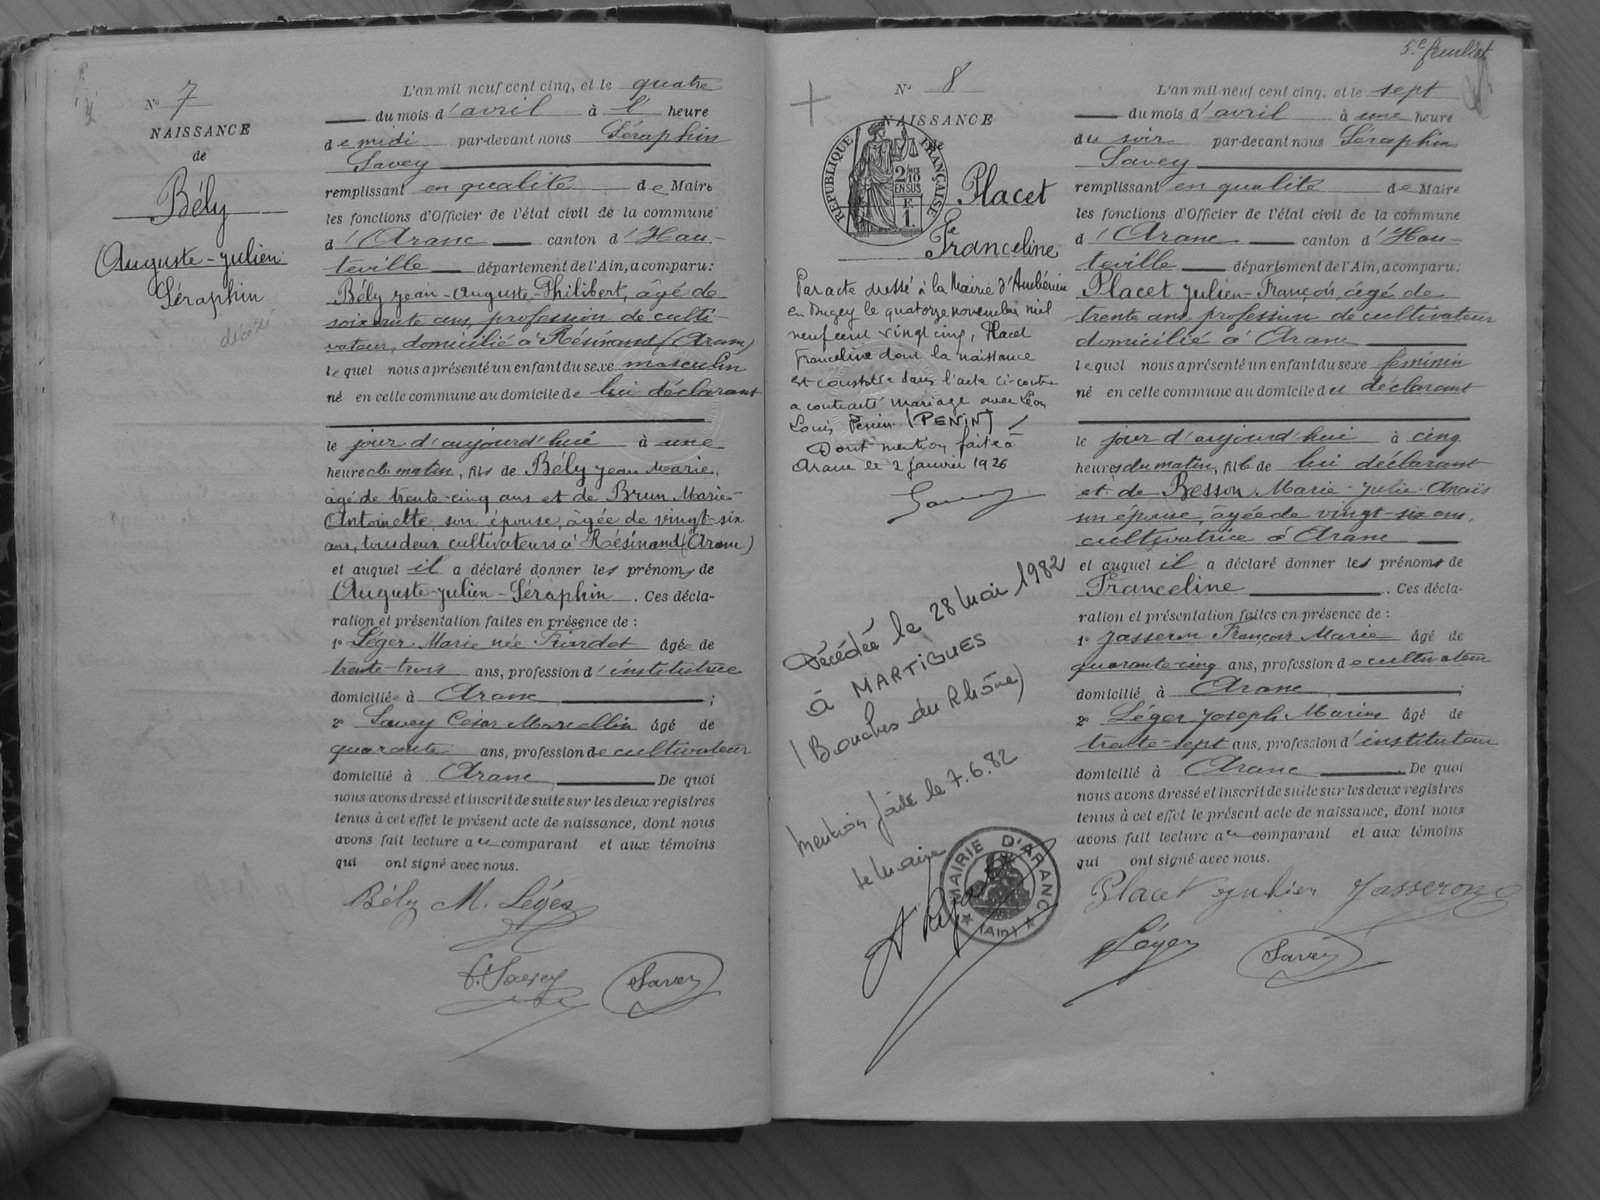 N° 7
NAISSANCE
de
Bély
Auguste-Julien
Séraphin
décédé
L'an mil neuf cent cinq, et le quatre
du mois d'avril à l' heure
de midi par-devant nous Séraphin
Savey
remplissant en qualité de Maire
les fonctions d'Officier de l'état civil de la commune
d'Aranc canton d'Hau-
teville département de l'Ain, a comparu:
Bély Jean-Auguste-Philibert, âgé de
soixante ans, profession de culti-
vateur, domicilié à Résinand (Aranc)
lequel nous a présenté un enfant du sexe masculin
né en cette commune au domicile de lui déclarant
le jour d'aujourd'hui à une
heure du matin, fils de Bély Jean Marie,
âgé de trente-cinq ans et de Brun Marie-
Antoinette son épouse, âgée de vingt-six
ans, tous deux cultivateurs à Résinand (Aranc)
et auquel il a déclaré donner les prénoms de
Auguste-Julien-Séraphin. Ces décla-
ration et présentation faites en présence de:
1° Léger Marie née Tiardet âgée de
trente-trois ans, profession d'institutrice
domiciliée à Aranc ;
2° Savey César Marcellin âgé de
quarante ans, profession de cultivateur
domicilié à Aranc De quoi
nous avons dressé et inscrit de suite sur les deux registres
tenus à cet effet le présent acte de naissance, dont nous
avons fait lecture au comparant et aux témoins
qui ont signé avec nous.
Bély M. Léger
C. Savey Savey
5e feuillet
N° 8
NAISSANCE
de
RÉPUBLIQUE FRANÇAISE
2/10 EN SUS
F. 1.
Placet
Franceline
Par acte dressé à la Mairie d'Ambérieu
en Bugey le quatorze novembre mil
neuf cent vingt cinq, Placet
Franceline dont la naissance
est constatée dans l'acte ci-contre
a contracté mariage avec Léon
Louis Penin (PENIN)
Dont mention faite à
Aranc le 2 janvier 1926
Savey
Décédée le 28 Mai 1982
à MARTIGUES
(Bouches du Rhône)
Mention faite le 7.6.82
le Maire
MAIRIE D'ARANC
(AIN)
L'an mil neuf cent cinq, et le sept
du mois d'avril à une heure
du soir par-devant nous Séraphin
Savey
remplissant en qualité de Maire
les fonctions d'Officier de l'état civil de la commune
d'Aranc canton d'Hau-
teville département de l'Ain, a comparu:
Placet Julien-François, âgé de
trente ans, profession de cultivateur
domicilié à Aranc
lequel nous a présenté un enfant du sexe féminin
né en cette commune au domicile du déclarant
le jour d'aujourd'hui à cinq
heures du matin, fille de lui déclarant
et de Besson Marie-Julie-Anaïs
son épouse, âgée de vingt-six ans,
cultivatrice à Aranc
et auquel il a déclaré donner les prénoms de
Franceline . Ces décla-
ration et présentation faites en présence de:
1° Jasseron François Marie âgé de
quarante-cinq ans, profession de cultivateur
domicilié à Aranc ;
2° Léger Joseph Marius âgé de
trente-sept ans, profession d'instituteur
domicilié à Aranc De quoi
nous avons dressé et inscrit de suite sur les deux registres
tenus à cet effet le présent acte de naissance, dont nous
avons fait lecture au comparant et aux témoins
qui ont signé avec nous.
Placet Julien Jasseron
Léger Savey